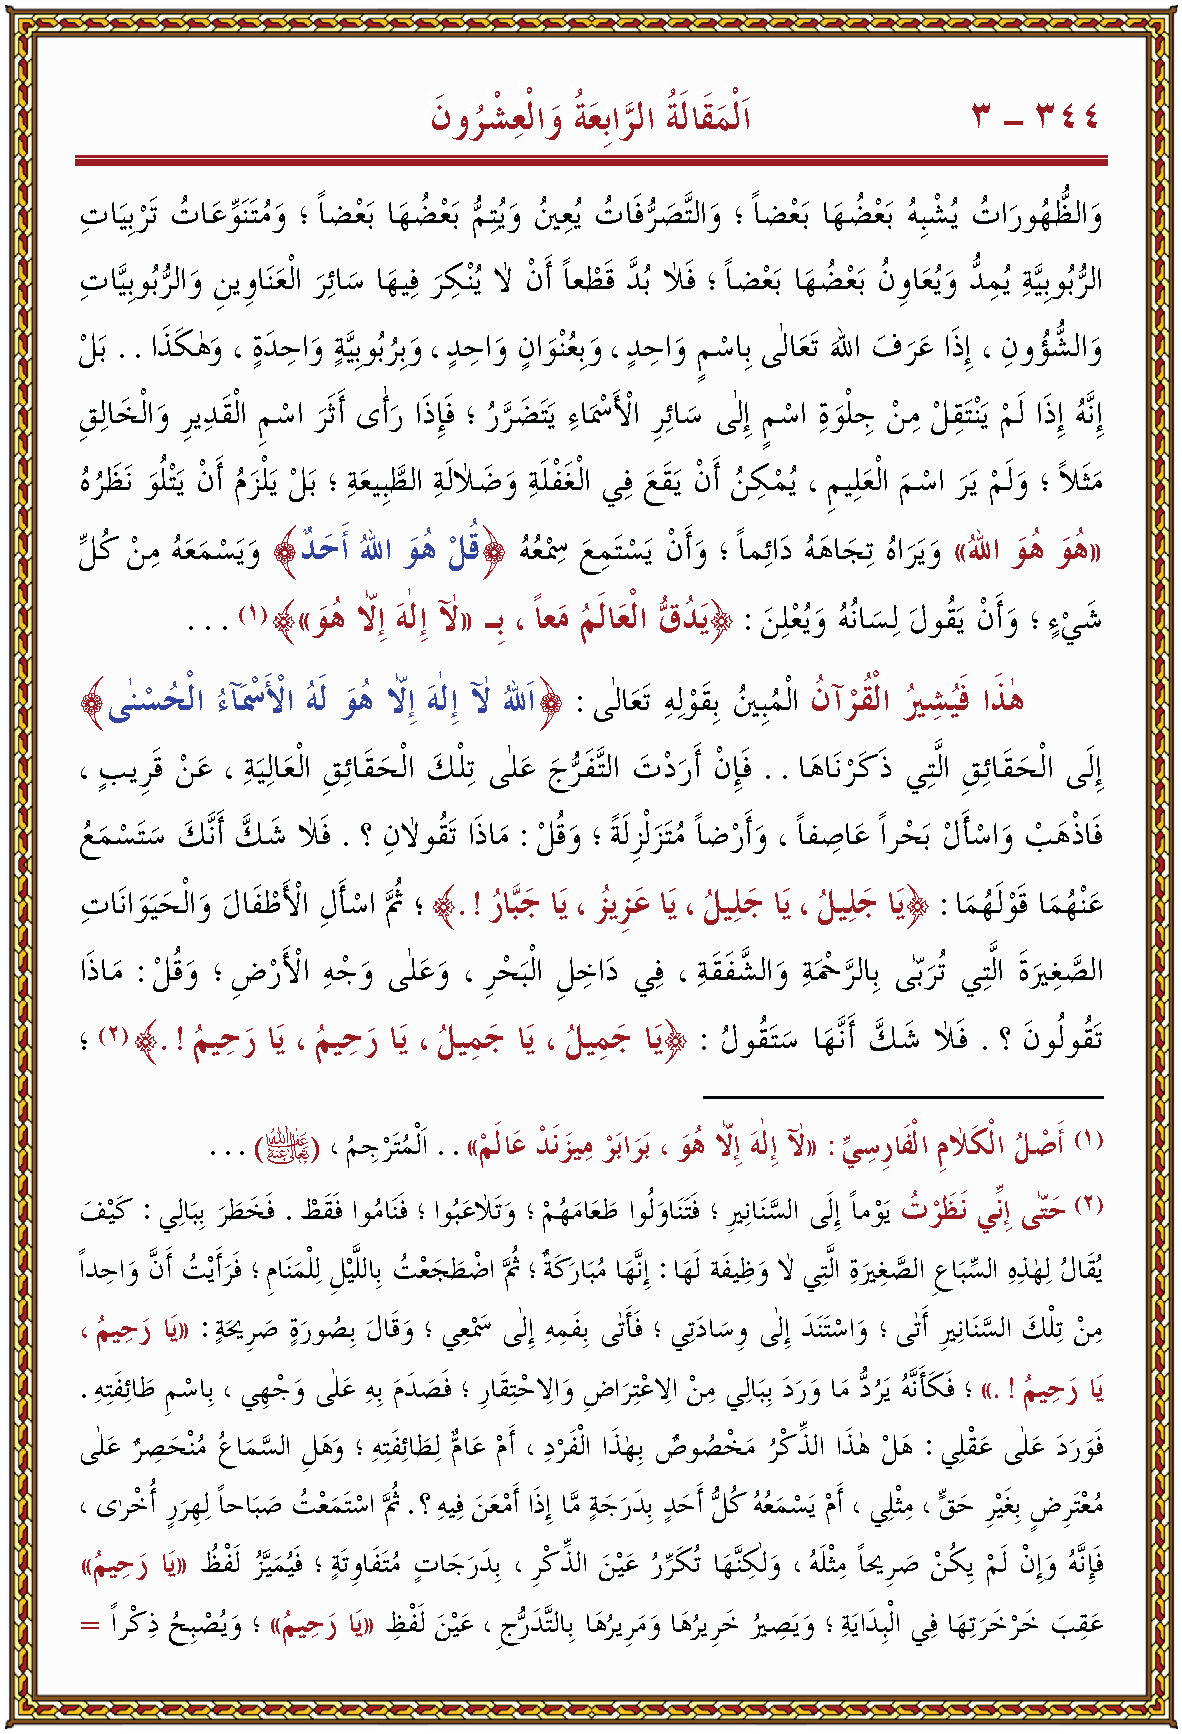 ٣٤٤ – ٣ اَلْمَقَالَةُ الرَّابِعَةُ وَالْعِشْرُونَ
وَالظُّهُورَاتُ يُشْبِهُ بَعْضُهَا بَعْضاً ؛ وَالتَّصَرُّفَاتُ يُعِينُ وَيُتِمُّ بَعْضُهَا بَعْضاً ؛ وَمُتَنَوِّعَاتُ تَرْبَيَاتِ
الرُّبُوبِيَّةِ يُمِدُّ وَيُعَاوِنُ بَعْضُهَا بَعْضاً ؛ فَلَا بُدَّ قَطْعاً أَنْ لَا يُنْكِرَ فِيهَا سَائِرَ الْعَنَاوِينِ وَالرُّبُوبِيَّاتِ
وَالشُّؤُونِ ، إِذَا عَرَفَ اللهَ تَعَالٰى بِاسْمٍ وَاحِدٍ ، وَبِعُنْوَانٍ وَاحِدٍ ، وَبِرُبُوبِيَّةٍ وَاحِدَةٍ ، وَهٰكَذَا . . بَلْ
إِنَّهُ إِذَا لَمْ يَنْتَقِلْ مِنْ جِلْوَةِ اسْمٍ إِلٰى سَائِرِ الْأَسْمَاءِ يَتَضَرَّرُ ؛ فَإِذَا رَأٰى أَثَرَ اسْمِ الْقَدِيرِ وَالْخَالِقِ
مَثَلاً ؛ وَلَمْ يَرَ اسْمَ الْعَلِيمِ ، يُمْكِنُ أَنْ يَقَعَ فِي الْغَفْلَةِ وَضَلَالَةِ الطَّبِيعَةِ ؛ بَلْ يَلْزَمُ أَنْ يَتْلُوَ نَظَرُهُ
«هُوَ هُوَ اللهُ» وَيَرَاهُ تِجَاهَهُ دَائِماً ؛ وَأَنْ يَسْتَمِعَ سَمْعُهُ ﴿قُلْ هُوَ اللهُ أَحَدٌ﴾ وَيَسْمَعَهُ مِنْ كُلِّ
شَيْءٍ ؛ وَأَنْ يَقُولَ لِسَانُهُ وَيُعْلِنَ : ﴿يَدُقُّ الْعَالَمُ مَعاً ، بِـ «لَآ إِلٰهَ إِلَّا هُوَ»﴾(١) . . .
هٰذَا فَيُشِيرُ الْقُرْآنُ الْمُبِينُ بِقَوْلِهِ تَعَالٰى : ﴿اَللهُ لَآ إِلٰهَ إِلَّا هُوَ لَهُ الْأَسْمَآءُ الْحُسْنٰى﴾
إِلَى الْحَقَائِقِ الَّتِي ذَكَرْنَاهَا . . فَإِنْ أَرَدْتَ التَّفَرُّجَ عَلٰى تِلْكَ الْحَقَائِقِ الْعَالِيَةِ ، عَنْ قَرِيبٍ ،
فَاذْهَبْ وَاسْأَلْ بَحْراً عَاصِفاً ، وَأَرْضاً مُتَزَلْزِلَةً ؛ وَقُلْ : مَاذَا تَقُولَانِ ؟ . فَلَا شَكَّ أَنَّكَ سَتَسْمَعُ
عَنْهُمَا قَوْلَهُمَا : ﴿يَا جَلِيلُ ، يَا جَلِيلُ ، يَا عَزِيزُ ، يَا جَبَّارُ ! .﴾ ؛ ثُمَّ اسْأَلِ الْأَطْفَالَ وَالْحَيَوَانَاتِ
الصَّغِيرَةَ الَّتِي تُرَبّٰى بِالرَّحْمَةِ وَالشَّفَقَةِ ، فِي دَاخِلِ الْبَحْرِ ، وَعَلٰى وَجْهِ الْأَرْضِ ؛ وَقُلْ : مَاذَا
تَقُولُونَ ؟ . فَلَا شَكَّ أَنَّهَا سَتَقُولُ : ﴿يَا جَمِيلُ ، يَا جَمِيلُ ، يَا رَحِيمُ ، يَا رَحِيمُ ! .﴾(٢) ؛
(١) أَصْلُ الْكَلَامِ الْفَارِسِيِّ : «لَآ إِلٰهَ إِلَّا هُوَ ، بَرَابَرْ مِيزَنَدْ عَالَمْ» . . اَلْمُتَرْجِمُ ، (ﷺ) . . .
(٢) حَتّٰى إِنِّي نَظَرْتُ يَوْماً إِلَى السَّنَانِيرِ ؛ فَتَنَاوَلُوا طَعَامَهُمْ ؛ وَتَلَاعَبُوا ؛ فَنَامُوا فَقَطْ . فَخَطَرَ بِبَالِي : كَيْفَ
يُقَالُ لِهٰذِهِ السِّبَاعِ الصَّغِيرَةِ الَّتِي لَا وَظِيفَةَ لَهَا : إِنَّهَا مُبَارَكَةٌ ؛ ثُمَّ اضْطَجَعْتُ بِاللَّيْلِ لِلْمَنَامِ ؛ فَرَأَيْتُ أَنَّ وَاحِداً
مِنْ تِلْكَ السَّنَانِيرِ أَتٰى ؛ وَاسْتَنَدَ إِلٰى وِسَادَتِي ؛ فَأَتٰى بِفَمِهِ إِلٰى سَمْعِي ؛ وَقَالَ بِصُورَةٍ صَرِيحَةٍ : «يَا رَحِيمُ ،
يَا رَحِيمُ ! .» ؛ فَكَأَنَّهُ يَرُدُّ مَا وَرَدَ بِبَالِي مِنْ الِاعْتِرَاضِ وَالِاحْتِقَارِ ؛ فَصَدَمَ بِهِ عَلٰى وَجْهِي ، بِاسْمِ طَائِفَتِهِ .
فَوَرَدَ عَلٰى عَقْلِي : هَلْ هٰذَا الذِّكْرُ مَخْصُوصٌ بِهٰذَا الْفَرْدِ ، أَمْ عَامٌّ لِطَائِفَتِهِ ؛ وَهَلِ السَّمَاعُ مُنْحَصِرٌ عَلٰى
مُعْتَرِضٍ بِغَيْرِ حَقٍّ ، مِثْلِي ، أَمْ يَسْمَعُهُ كُلُّ أَحَدٍ بِدَرَجَةٍ مَّا إِذَا أَمْعَنَ فِيهِ ؟ . ثُمَّ اسْتَمَعْتُ صَبَاحاً لِهِرَرٍ أُخْرٰى ،
فَإِنَّهُ وَإِنْ لَمْ يَكُنْ صَرِيحاً مِثْلَهُ ، وَلٰكِنَّهَا تُكَرِّرُ عَيْنَ الذِّكْرِ ، بِدَرَجَاتٍ مُتَفَاوِتَةٍ ؛ فَيُمَيَّزُ لَفْظُ «يَا رَحِيمُ»
عَقِبَ خَرْخَرَتِهَا فِي الْبِدَايَةِ ؛ وَيَصِيرُ خَرِيرُهَا وَمَرِيرُهَا بِالتَّدَرُّجِ ، عَيْنَ لَفْظِ «يَا رَحِيمُ» ؛ وَيُصْبِحُ ذِكْراً =